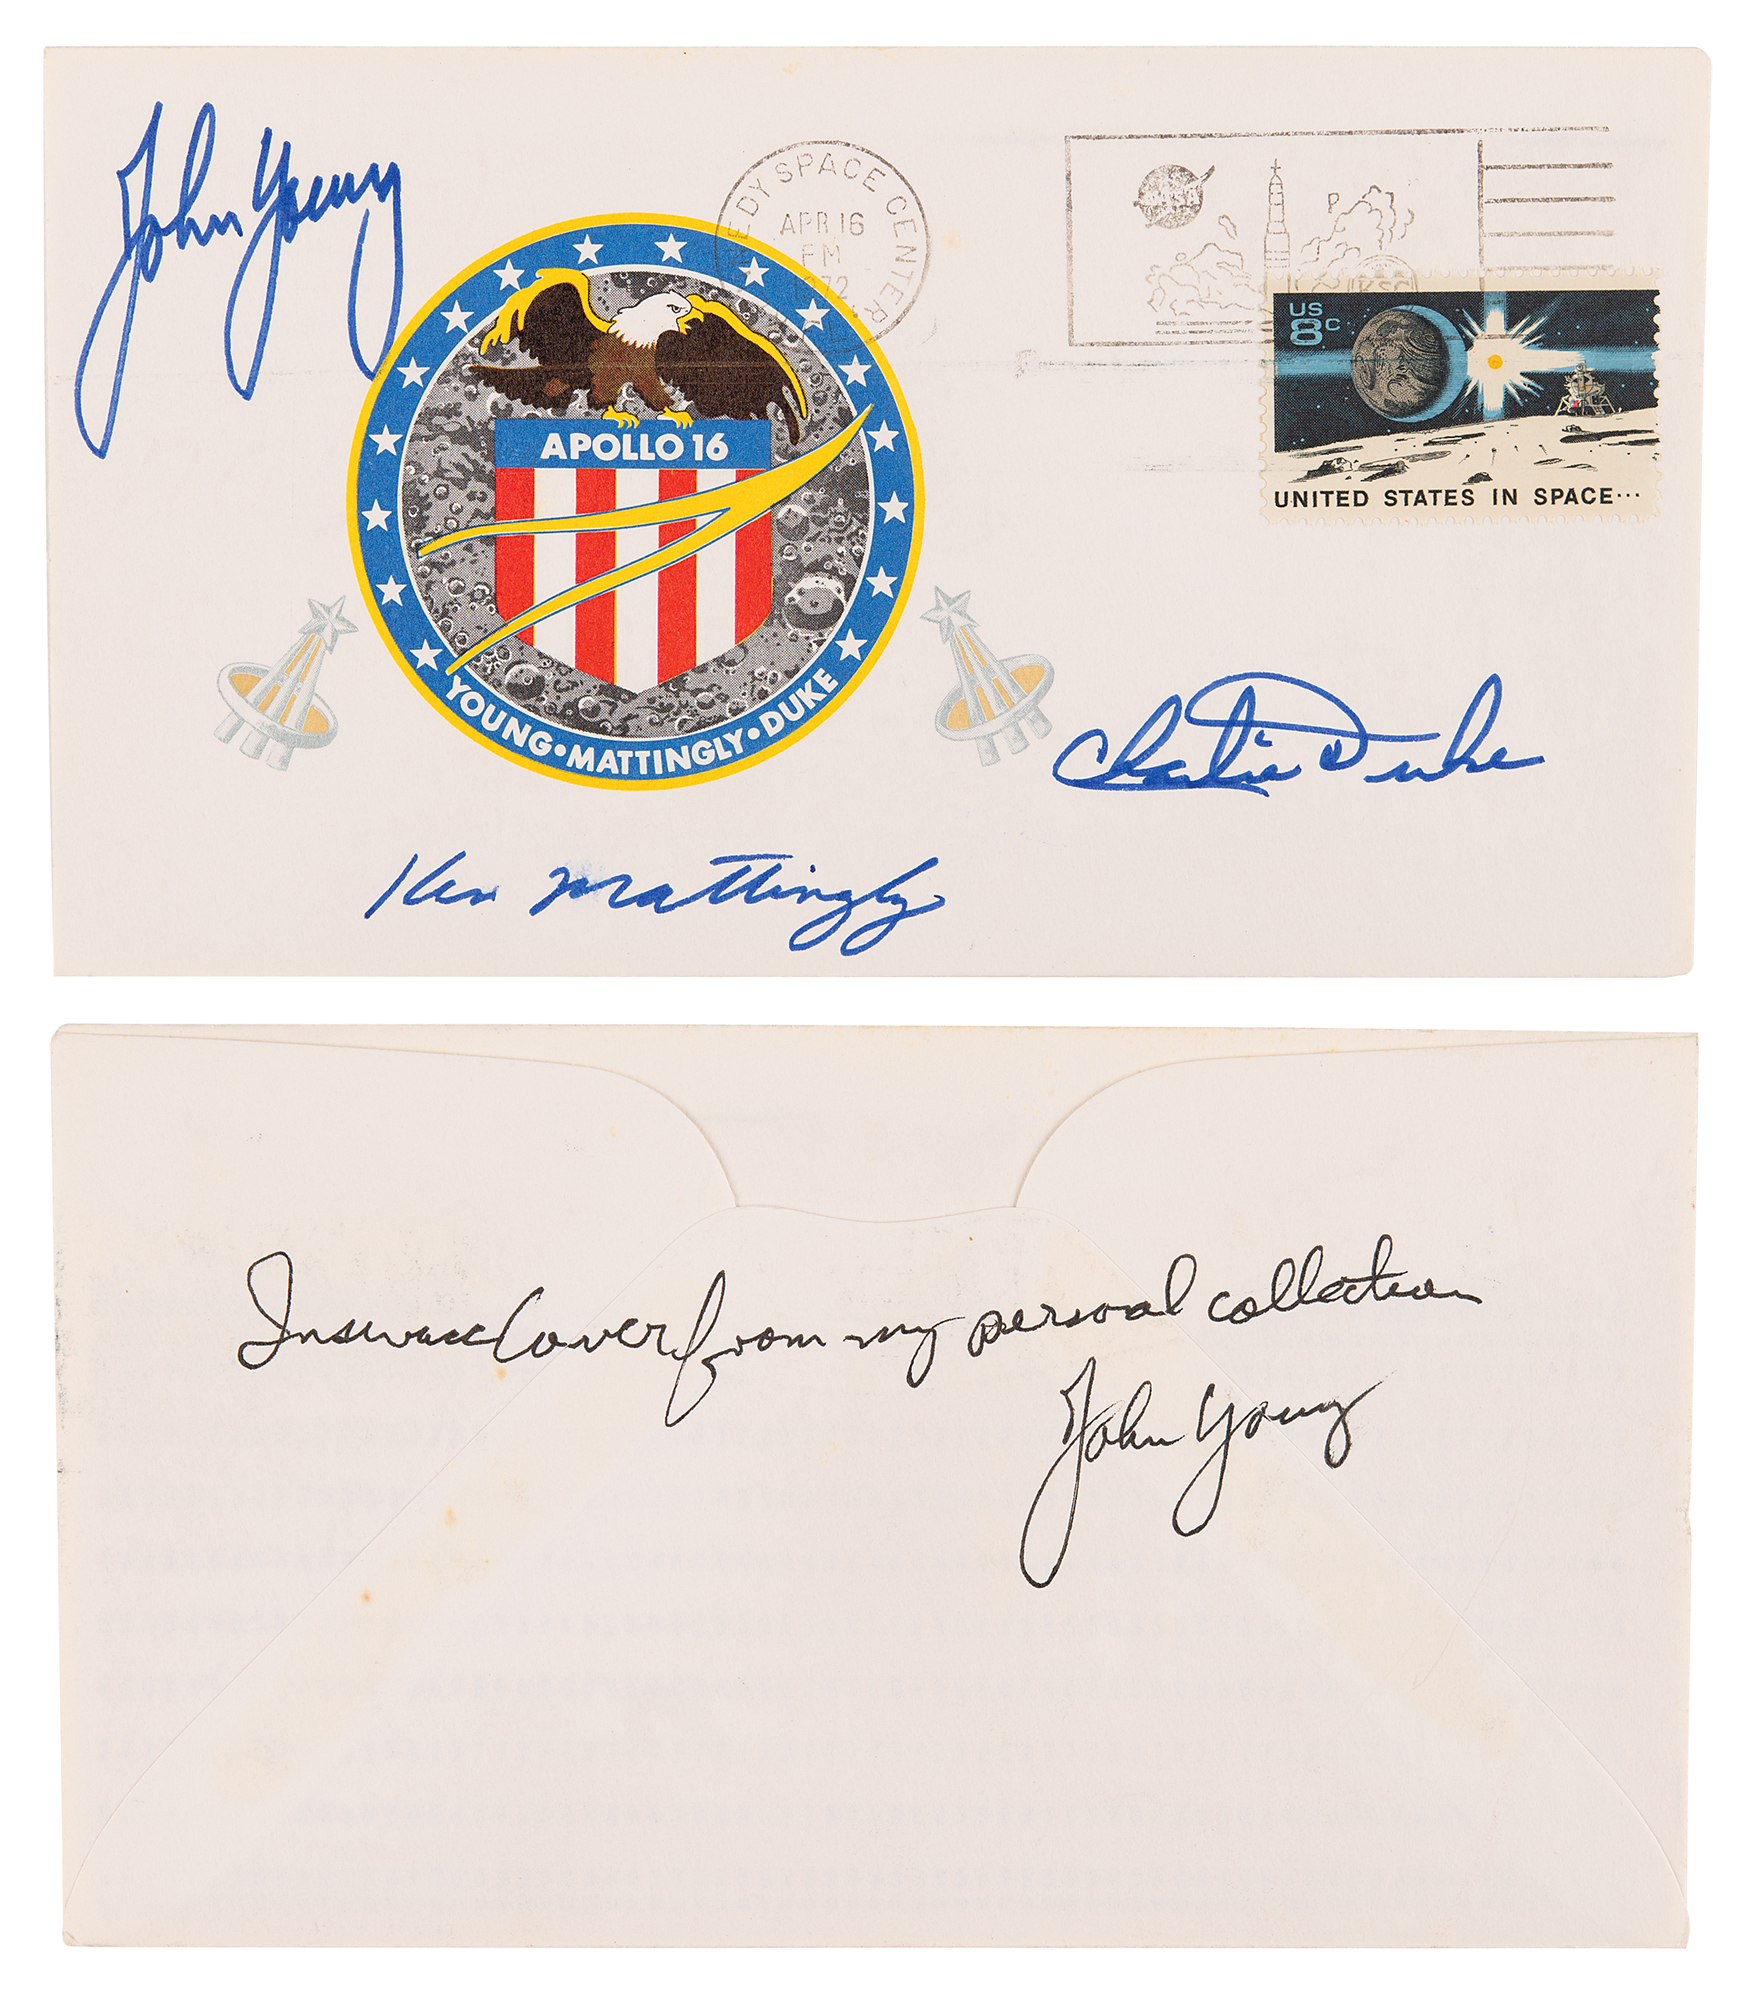 John Young
KENNEDY SPACE CENTER
APR 16
PM
1972
NASA
US
8c
UNITED STATES IN SPACE...
APOLLO 16
YOUNG • MATTINGLY • DUKE
Charlie Duke
Ken Mattingly
Insurance Cover from my personal collection
John Young